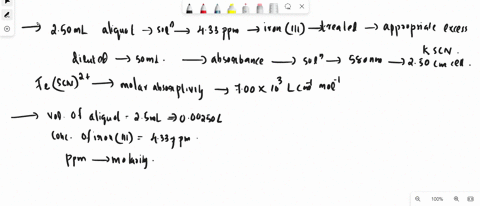 → 2.50mL aliquot → solⁿ → 4.33 ppm → iron (III) → treated → appropriate excess
KSCN.
diluted → 50mL. → absorbance → solⁿ → 580nm → 2.50 cm cell.
Fe(SCN)²⁺ → molar absorptivity → 7.00 × 10³ L cm⁻¹ mol⁻¹
→ vol. of aliquot = 2.5mL ⇒ 0.00250L
Conc. of iron (III) = 4.33 ppm.
ppm → molarity.
100%